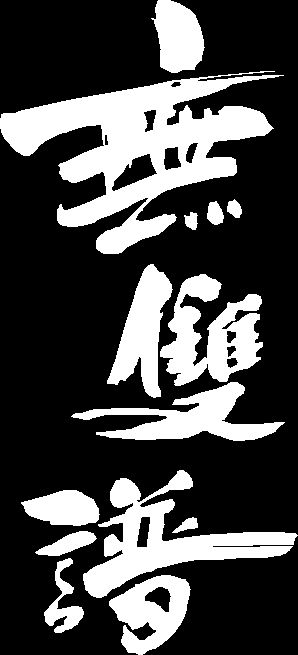 無雙譜